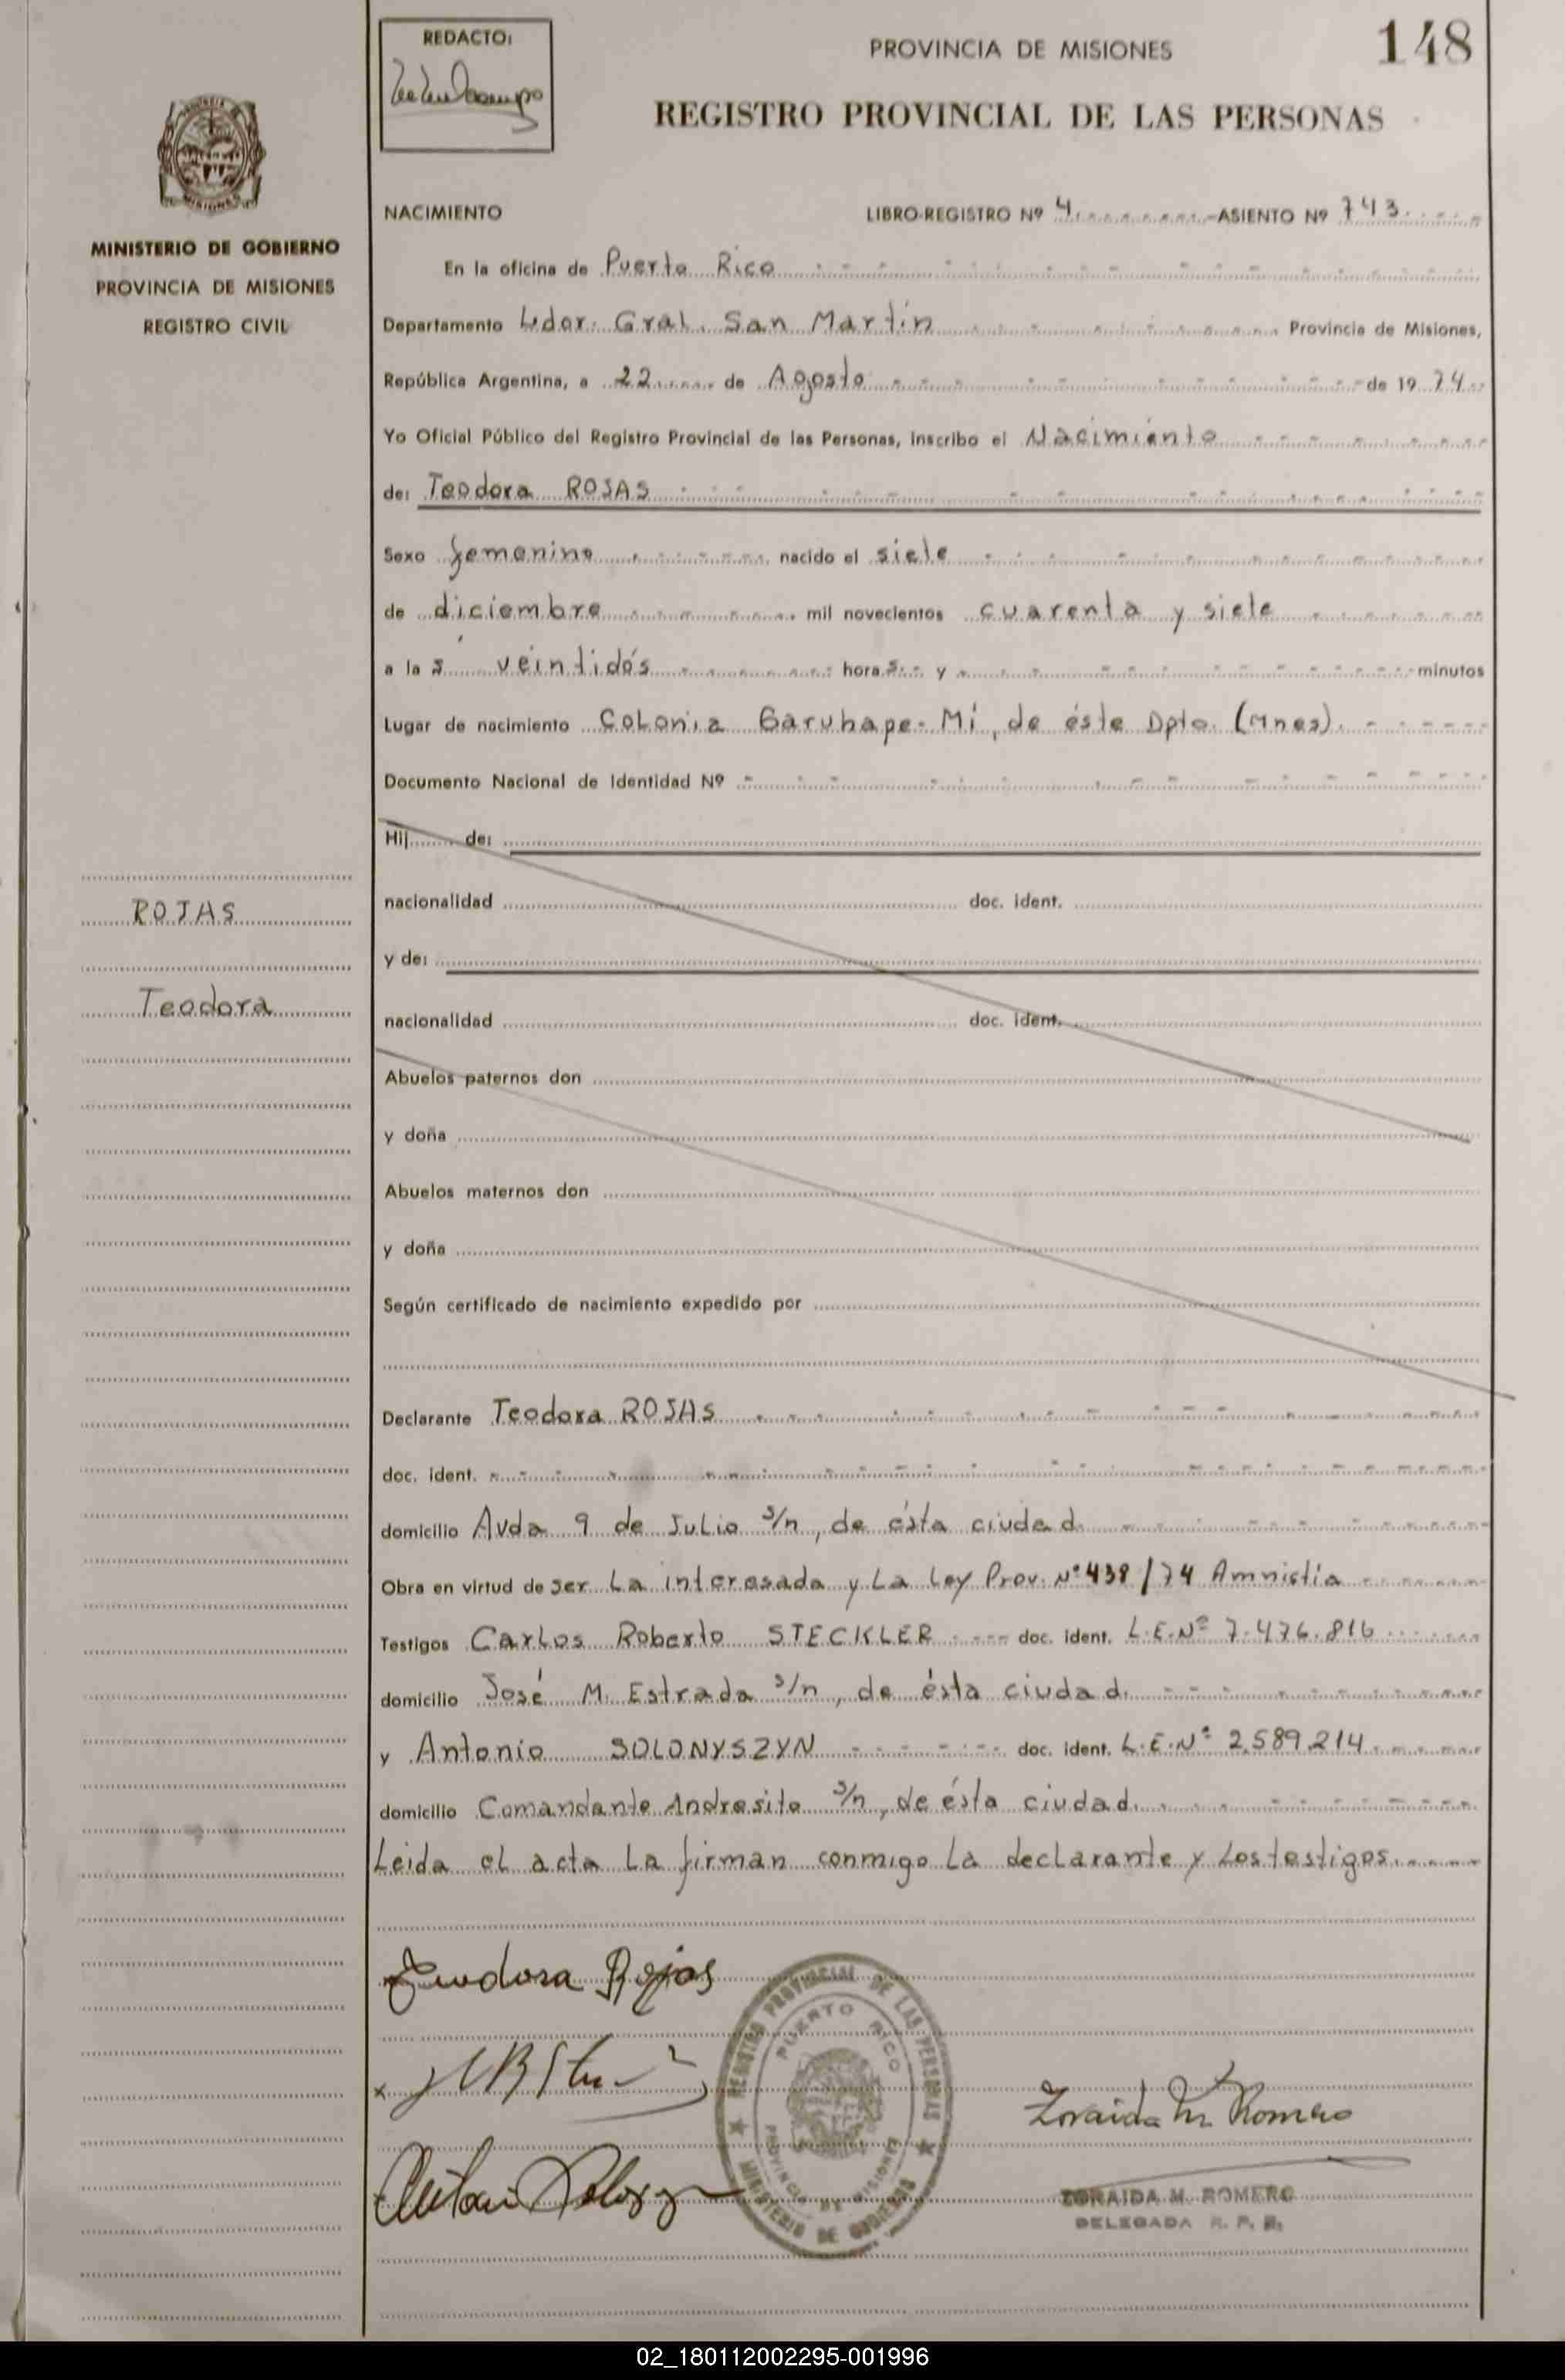 REDACTO:
PROVINCIA DE MISIONES
148
REGISTRO PROVINCIAL DE LAS PERSONAS
MINISTERIO DE GOBIERNO
PROVINCIA DE MISIONES
REGISTRO CIVIL
NACIMIENTO LIBRO-REGISTRO Nº 4 ASIENTO Nº 743
En la oficina de Puerto Rico
Departamento Ldor. Gral. San Martín Provincia de Misiones,
República Argentina, a 22 de Agosto de 19 74
Yo Oficial Público del Registro Provincial de las Personas, inscribo el Nacimiento
de: Teodora ROJAS
Sexo femenino nacido el siete
de diciembre mil novecientos cuarenta y siete
a la s veintidós hora s y minutos
Lugar de nacimiento Colonia Garuhape-Mí, de éste Dpto. (Mnes).
Documento Nacional de Identidad Nº
Hij de:
nacionalidad doc. ident.
y de:
nacionalidad doc. ident.
Abuelos paternos don
y doña
Abuelos maternos don
y doña
Según certificado de nacimiento expedido por
ROJAS
Teodora
Declarante Teodora ROJAS
doc. ident.
domicilio Avda 9 de Julio s/n, de ésta ciudad.
Obra en virtud de ser La interesada y La Ley Prov. Nº 438/74 Amnistía
Testigos Carlos Roberto STECKLER doc. ident. L.E.Nº 7.476.816
domicilio José M. Estrada s/n, de ésta ciudad.
y Antonio SOLONYSZYN doc. ident. L.E.Nº 2.589.214
domicilio Comandante Andresito s/n, de ésta ciudad.
Leida el acta La firman conmigo La declarante y Los testigos.
Teodora Rojas
REGISTRO PROVINCIAL DE LAS PERSONAS
PUERTO RICO
PROVINCIA DE MISIONES
MINISTERIO DE GOBIERNO
Zoraida M. Romero
ZORAIDA M. ROMERO
DELEGADA R. P. P.
02_180112002295-001996